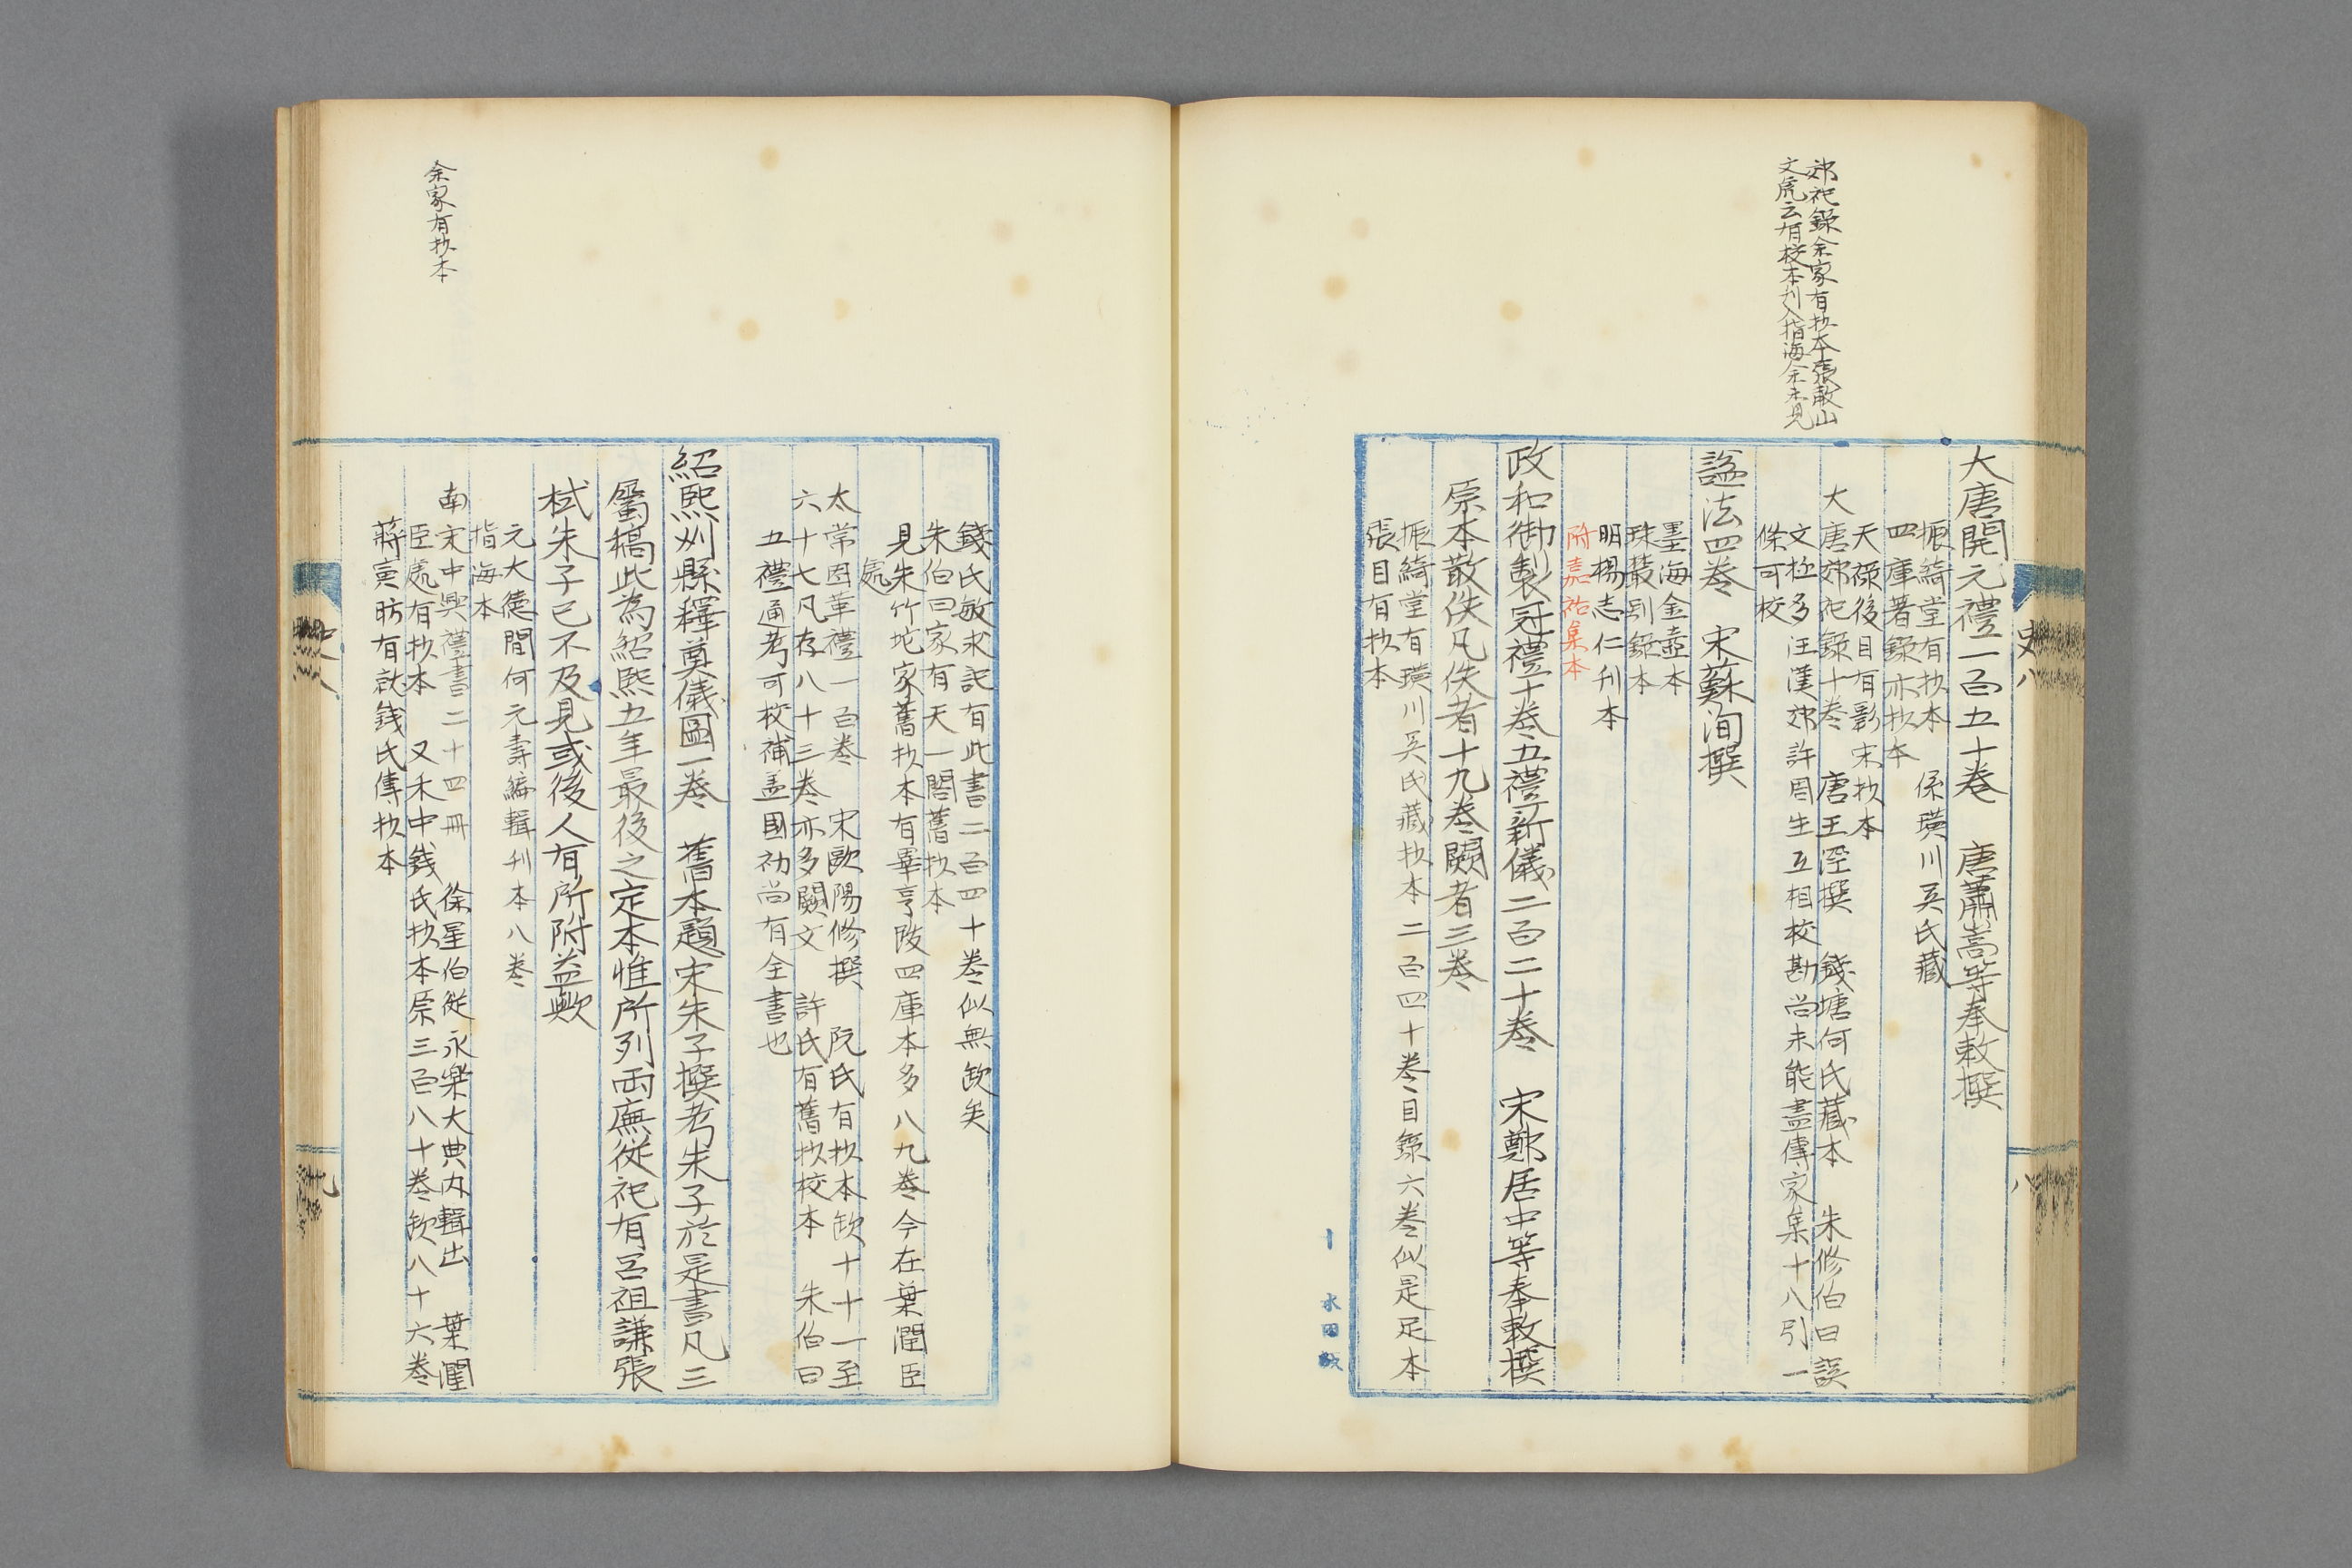 郊祀錄余家有抄本張歗山
文虎云有校本刋入指海余未見
史八
八
大唐開元禮一百五十卷　唐蕭嵩等奉敕撰
振綺堂有抄本　係璜川吴氏藏
四庫著錄亦抄本
天祿後目有影宋抄本
大唐郊祀錄十卷　唐王涇撰　錢塘何氏藏本　朱修伯曰誤
文極多汪漢郊許周生互相校勘尚未能盡傳家集十八引一
條可校
諡法四卷　宋蘇洵撰
墨海金壺本
珠叢別錄本
明楊志仁刋本
附嘉祐集本
政和御製冠禮十卷五禮新儀二百二十卷　宋鄭居中等奉敕撰
原本散佚凡佚者十九卷闕者三卷
振綺堂有璜川吴氏藏抄本二百四十卷目錄六卷似是足本
張目有抄本
錢氏敏求記有此書二百四十卷似無欽矣
朱伯曰家有天一閣舊抄本
見朱竹垞家舊抄本有畢亨跋四庫本多八九卷今在葉潤臣
處
太常因革禮一百卷　宋歐陽修撰　阮氏有抄本缺十十一至
六十七凡存八十三卷亦多闕文　許氏有舊抄校本　朱伯曰
五禮通考可校補盖國初尚有全書也
紹熙州縣釋奠儀圖一卷　舊本題宋朱子撰考朱子於是書凡三
屬稿此為紹熙五年最後之定本惟所列兩廡從祀有呂祖謙張
栻朱子已不及見或後人有所附益歟
元大德間何元壽編輯刋本八卷
指海本
余家有抄本
南宋中興禮書二十四冊　徐星伯從永樂大典内輯出　葉潤
臣處有抄本　又禾中錢氏抄本原三百八十卷缺八十六卷
蔣寅昉有就錢氏傳抄本
九